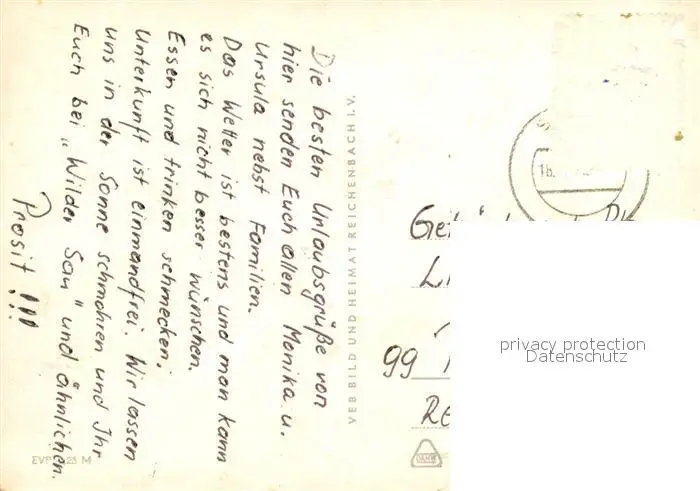 Die besten Urlaubsgrüße von
hier senden Euch allen Monika u.
Ursula nebst Familien.
Das Wetter ist bestens und man kann
es sich nicht besser wünschen.
Essen und trinken schmecken;
Unterkunft ist einmandfrei. Wir lassen
uns in der Sonne schmohren und Ihr
Euch bei „Wilder Sau" und ähnlichen.
Prosit !!!
VEB BILD UND HEIMAT REICHENBACH I.V.
16.
99
privacy protection
Datenschutz
M